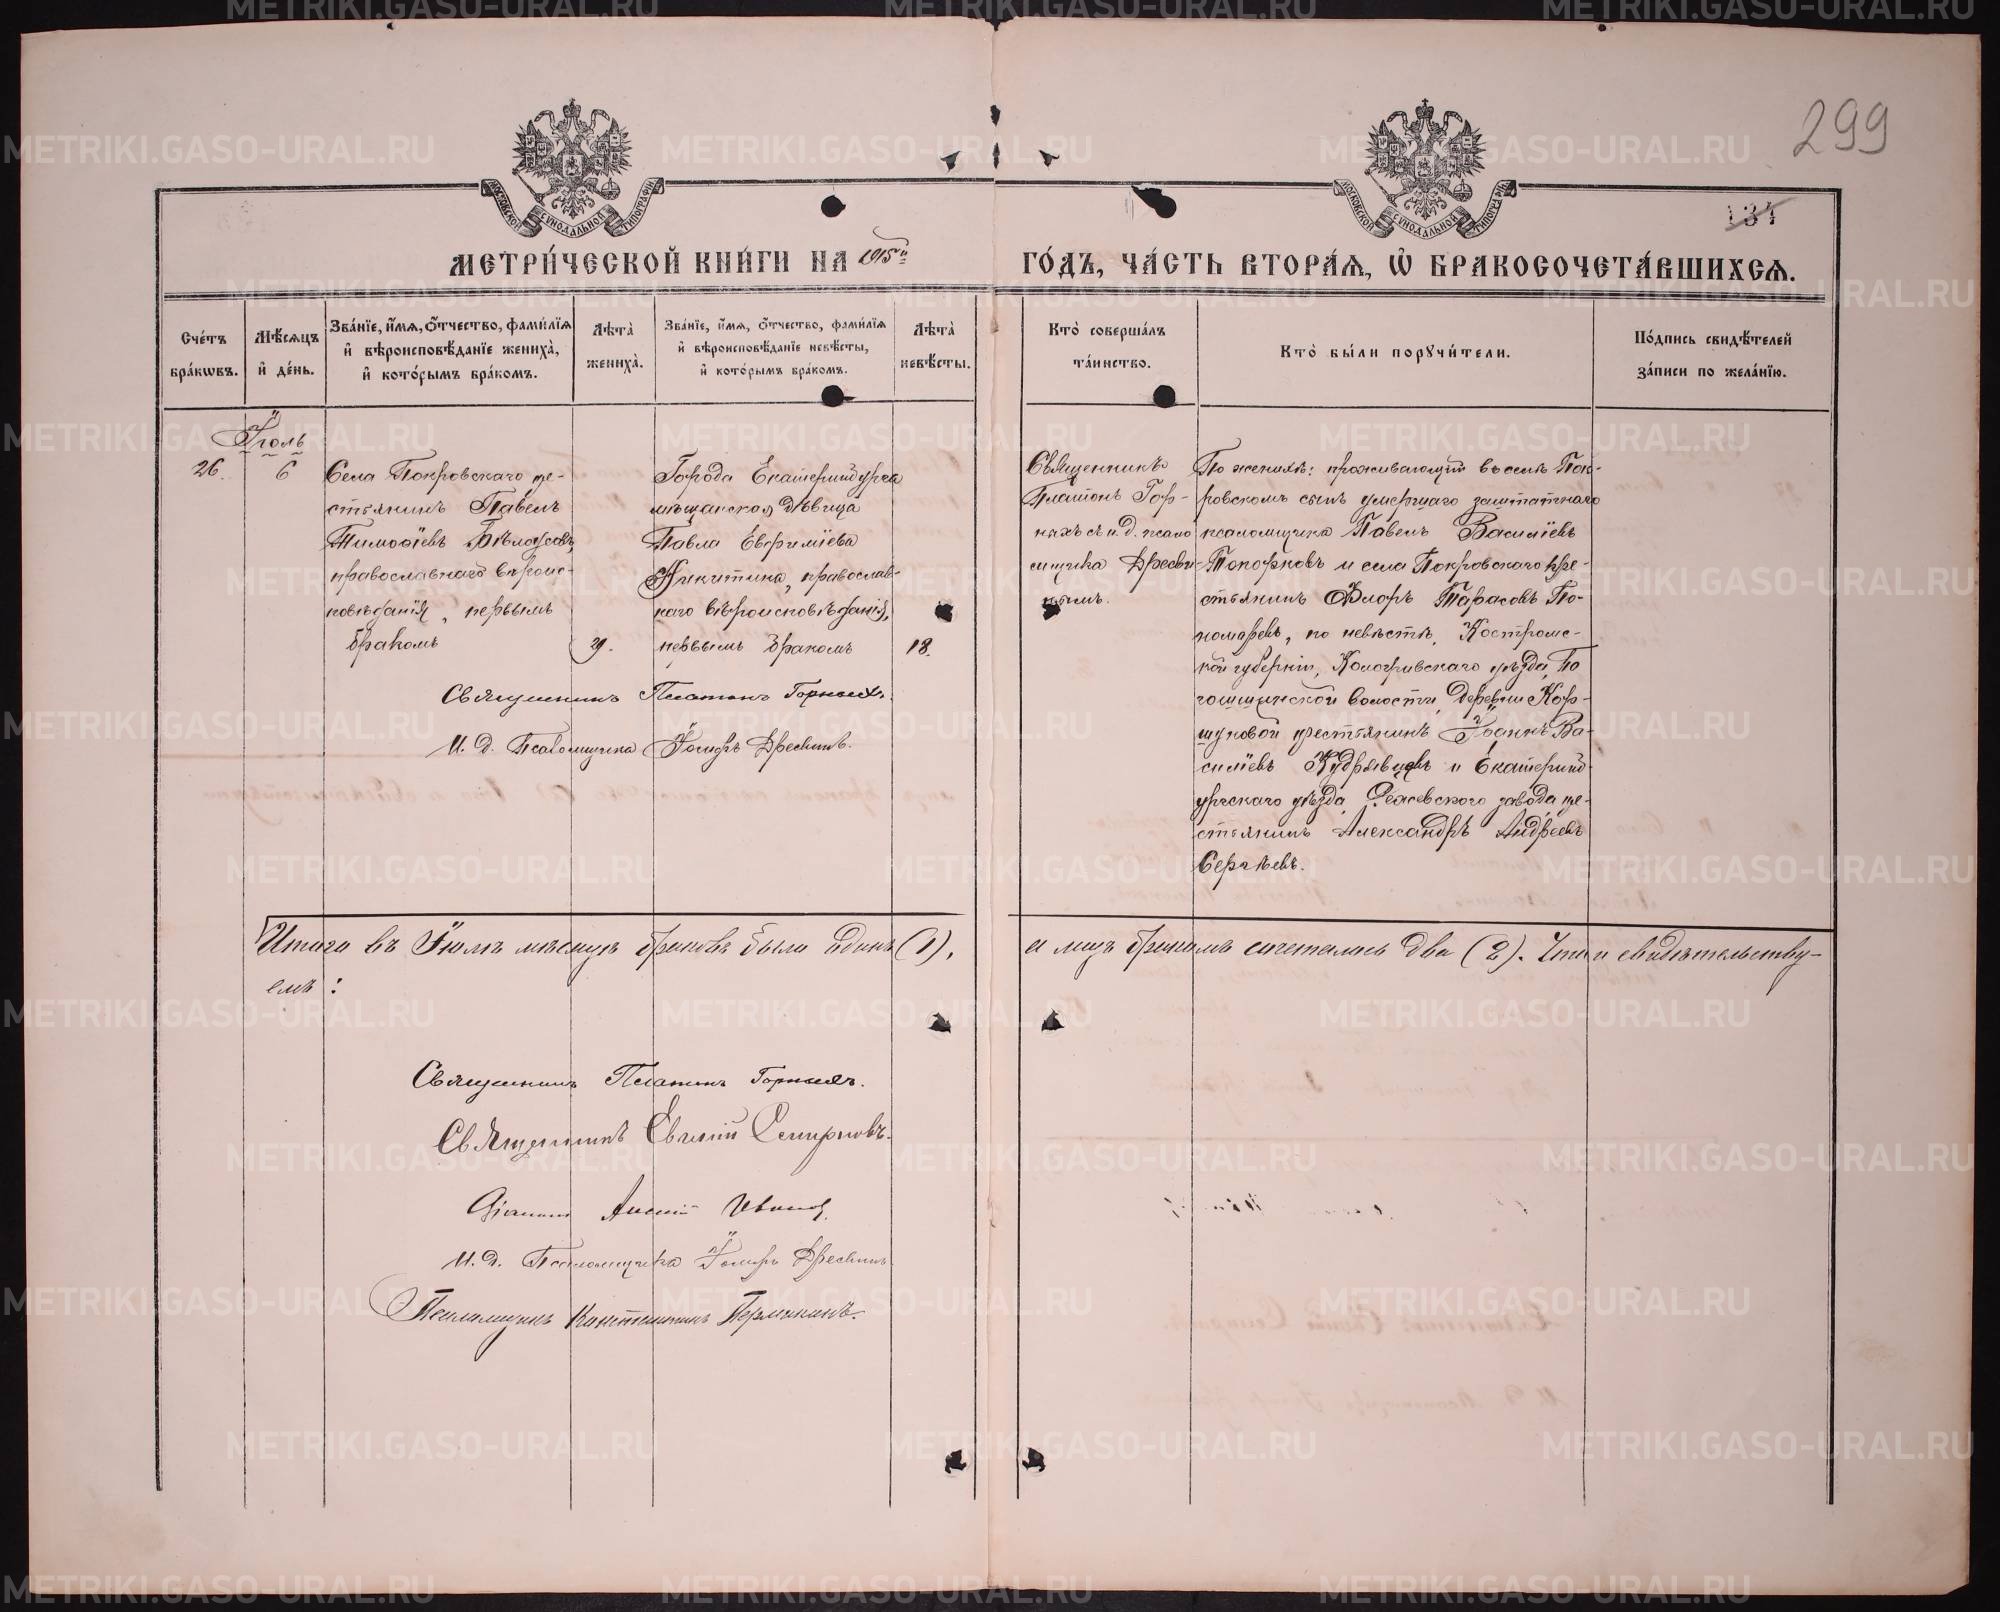 299
134
МОСКОВСКОЙ СУНОДАЛЬНОЙ ТИПОГРАФІИ
МОСКОВСКОЙ СУНОДАЛЬНОЙ ТИПОГРАФІИ
МЕТРИ́ЧЕСКОЙ КНИ́ГИ НА 1915й ГО́ДЪ, ЧА́СТЬ ВТОРА́Ѧ, Ѿ БРАКОСОЧЕТА́ВШИХСѦ.
Сче́тъ бра́кѡвъ.
Мѣ́сѧцъ и҆ де́нь.
Зва́нїе, и҆́мѧ, ѻ҆́тчество, фами́лїѧ и҆ вѣроисповѣ́данїе жениха̀, и҆ кото́рымъ бра́комъ.
Лѣта̀ жениха̀.
Зва́нїе, и҆́мѧ, ѻ҆́тчество, фами́лїѧ и҆ вѣроисповѣ́данїе невѣ́сты, и҆ кото́рымъ бра́комъ.
Лѣта̀ невѣ́сты.
Кто̀ соверша́лъ та́инство.
Кто̀ бы́ли порꙋчи́тели.
По́дпись свидѣ́телей за́писи по жела́нїю.
Іюль
26.
6
Села Покровскаго кре-
стьянинъ Павелъ
Тимоѳіевъ Бѣлоусовъ,
православнаго вѣроис-
повѣданія, первымъ
бракомъ
29.
Города Екатеринбурга
мѣщанская дѣвица
Павла Евфиміева
Никитина, православ-
наго вѣроисповѣданія,
первымъ бракомъ
18.
Священникъ
Платонъ Гор-
ныхъ съ и.д. псало
мщика Дресви-
нымъ.
По женихѣ: проживающій въ селѣ Пок-
ровскомъ сынъ умершаго заштатнаго
псаломщика Павелъ Василіевъ
Топорковъ и села Покровскаго кре-
стьянинъ Флоръ Тарасовъ По-
номаревъ, по невѣстѣ, Костромс-
кой губерніи, Кологривскаго уѣзда,
волости, деревни Кор-
шуновой крестьянинъ Іоаннъ Ва-
силіевъ Кудрявцевъ и Екатеринб-
ургскаго уѣзда, Режевского завода, кре-
стьянинъ Александръ Андреевъ
Сергѣевъ.
Священникъ Платонъ Горныхъ.
И. д. Псаломщика Іосифъ Дресвинъ.
Итого въ Іюлѣ мѣсяцѣ браковъ было одинъ (1), а лицъ бракомъ сочеталось два (2). Что и свидѣтельству-
емъ:
Священникъ Платонъ Горныхъ.
Священникъ Евгеній Смирновъ.
Діаконъ
И. д. Псаломщика Іосифъ Дресвинъ
Псаломщикъ Константинъ Пермякинъ.
METRIKI.GASO-URAL.RU